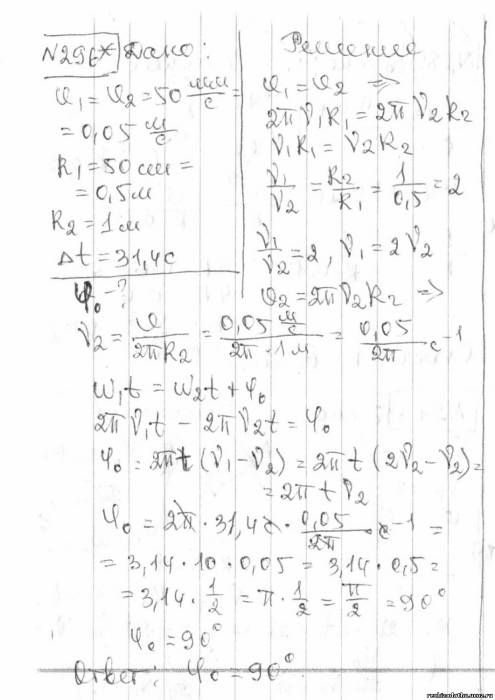 N296* Дано:
υ₁ = υ₂ = 50 мм/с =
= 0,05 м/с
R₁ = 50 см =
= 0,5 м
R₂ = 1 м
Δt = 31,4 с
φ₀ - ?
Решение
υ₁ = υ₂ ⇒
2πν₁R₁ = 2πν₂R₂
ν₁R₁ = ν₂R₂
ν₁/ν₂ = R₂/R₁ = 1/0,5 = 2
ν₁/ν₂ = 2, ν₁ = 2ν₂
υ₂ = 2πν₂R₂ ⇒
ν₂ = υ/2πR₂ = 0,05 м/с / 2π · 1 м = 0,05/2π с⁻¹
ω₁t = ω₂t + φ₀
2πν₁t - 2πν₂t = φ₀
φ₀ = 2πt (ν₁ - ν₂) = 2πt (2ν₂ - ν₂) =
= 2πtν₂
φ₀ = 2π · 31,4 с · 0,05/2π · с⁻¹ =
= 3,14 · 10 · 0,05 = 3,14 · 0,5 =
= 3,14 · 1/2 = π · 1/2 = π/2 = 90°
φ₀ = 90°
Ответ: φ₀ = 90°